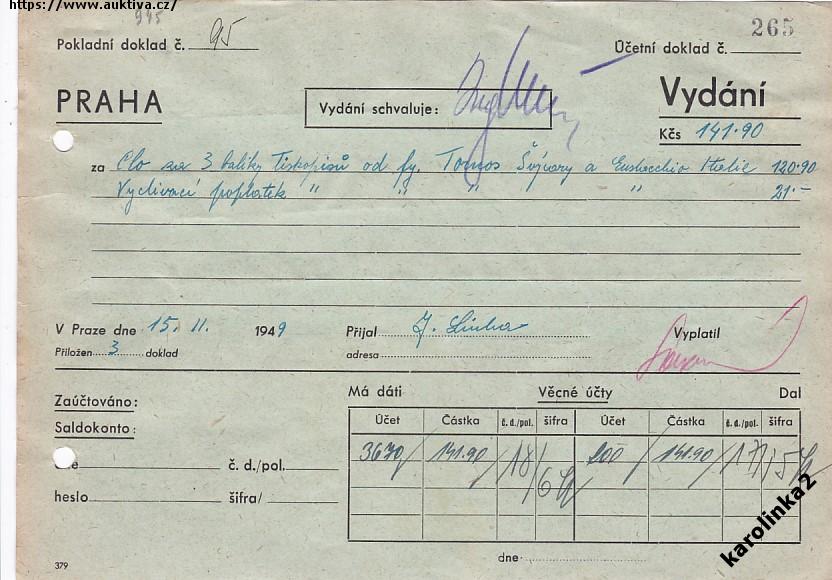 https://www.auktiva.cz/
945
Pokladní doklad č. 95
Účetní doklad č. 265
PRAHA
Vydání schvaluje:
Vydání
Kčs 141·90
za Clo za 3 balíky Tiskopisů od fy. Tomos Švýcary a Eustacchio Italie 120·90
Vyclívací poplatek " " " " 21.–
V Praze dne 15. II. 1949
Přijal J. Linha
Vyplatil
Přiložen 3 doklad
adresa
Zaúčtováno:
Má dáti Věcné účty Dal
Saldokonto:
Účet Částka č. d./pol. šifra Účet Částka č. d./pol. šifra
3670/ 141.90/ 18/ 6 200/ 141.90/ 17/ 5
č. d./pol.
heslo šifra/
dne
379
karolinka2